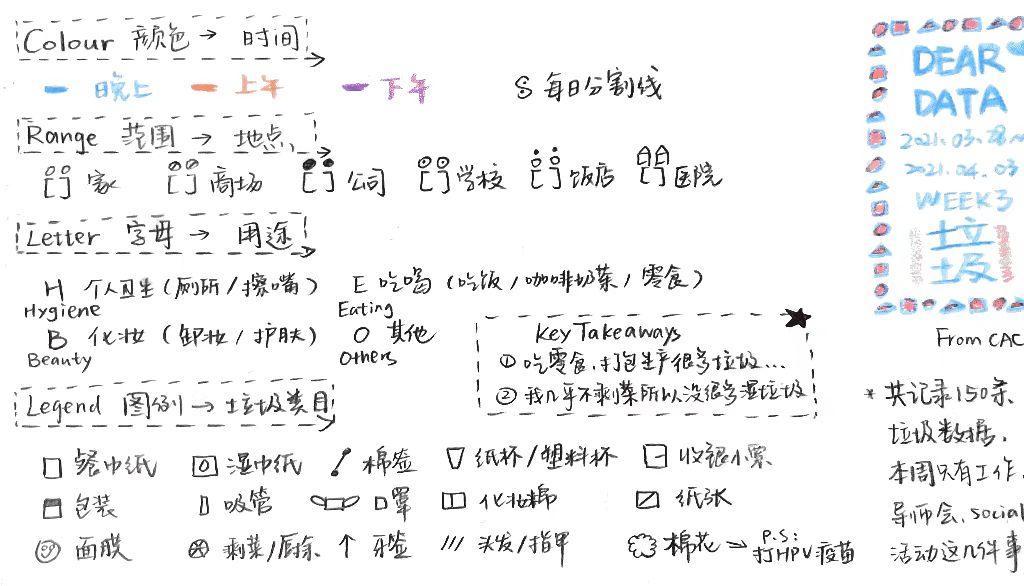 Colour 颜色 → 时间
晚上 上午 下午 每日分割线
Range 范围 → 地点
家 商场 公司 学校 饭店 医院
Letter 字母 → 用途
H 个人卫生(厕所/擦嘴) E 吃喝(吃饭/咖啡奶茶/零食)
Hygiene Eating
B 化妆(卸妆/护肤) O 其他
Beauty Others
Key Takeaways
① 吃零食,打包生产很多垃圾...
② 我几乎不剩菜所以没很多湿垃圾
Legend 图例 → 垃圾类目
餐巾纸 湿巾纸 棉签 纸杯/塑料杯 收银小票
包装 吸管 口罩 化妆棉 纸张
面膜 剩菜/厨余 牙签 头发/指甲 棉花 → P.S:
打HPV疫苗
DEAR
DATA
2021.03.
2021.04.03
WEEK3
垃
圾
From CAC
* 共记录150条
垃圾数据,
本周只有工作,
导师会,social
活动这几件事